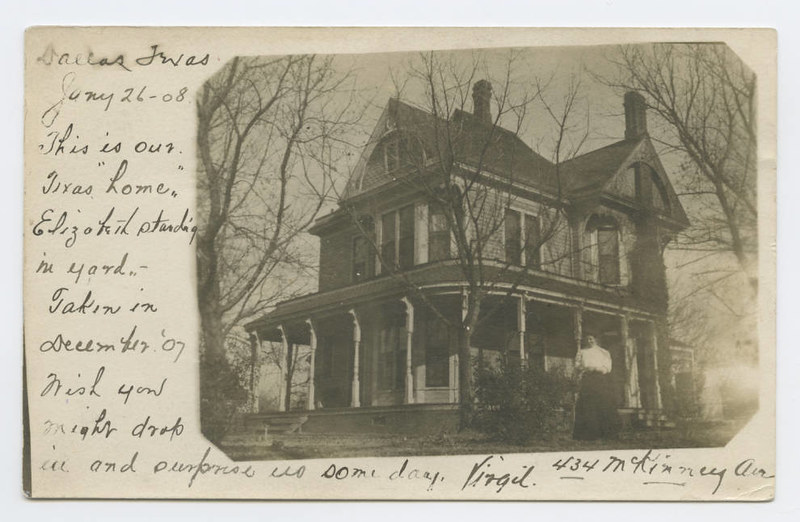 Dallas Texas
Jany 26-08.
This is our
Texas "home"
Elizabeth standing
in yard.-
Taken in
December '07
Wish you
might drop
in and surprise us some day. Virgil. 434 McKinney Ave